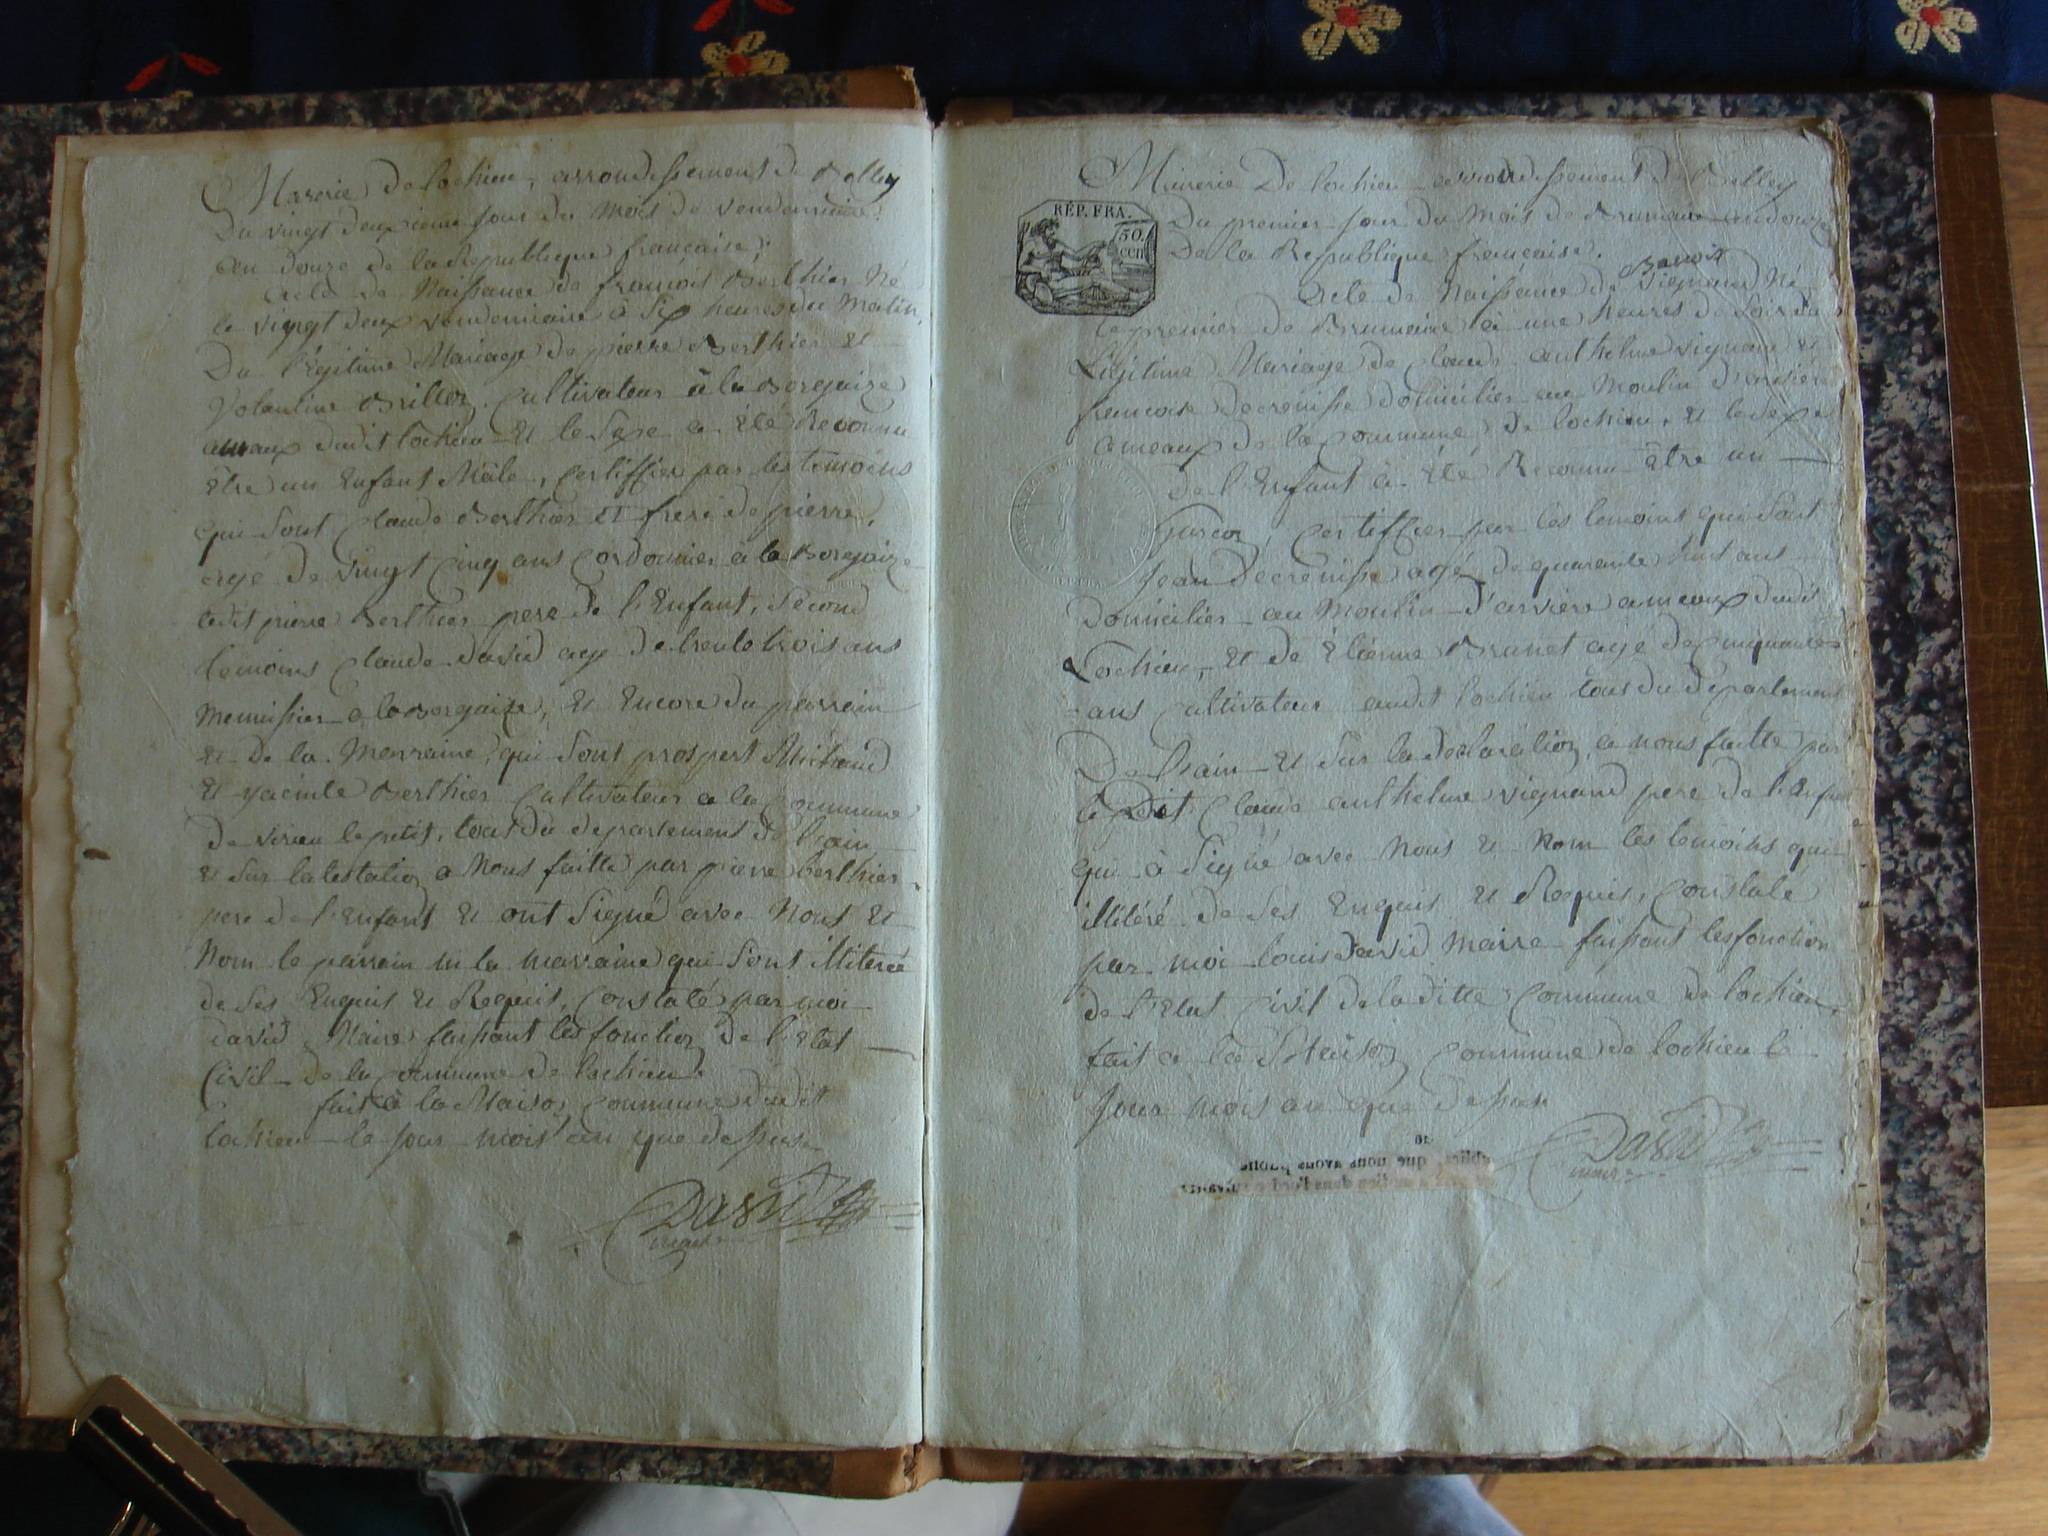 Mairerie de lochieu, arrondissement de Belley
Du vingt deuxieme jour du mois de vendemiaire
an douze de la Republique française;
acte de Naissance de françois Berthier Né
le vingt deux vendemiaire à six heures du matin,
Du légitime Mariage de pierre Berthier et
Volantine Brillon, Cultivateur à la
ameaux dudit lochieu et le sexe a été Reconnu
être un Enfant Mâle, certiffier par les temoins
qui sont Claude Berthier et frere de pierre,
agé de vingt cinq ans Cordonnier a la
ledit pierre Berthier pere de l'Enfant, second
temoins Claude David agé de trente trois ans
Menuissier a la et Encore du parrain
et de la Marraine, qui sont prospert Michaud
et yacinte Berthier Cultivateur a la Commune
de virieu le petit, tout du departement de l'ain
et sur latestation a Nous faitte par pierre berthier
pere de l'Enfant et ont signé avec Nous et
Nom le parrain ni la marraine qui sont illiteré
de ses Enquis et Requis, Constaté par moi
David Maire faissant les fonction de l'Etat
Civil de la Commune de lochieu.
fait à la Maison Commune dudit
lochieu le jour mois an que dessus
David
maire
Mairerie De lochieu arrondissement de Belley
RÉP. FRA.
50.
cen
Du premier jour du mois de Brumaire an douze
De la Republique française.
Benoit
Acte de Naissance de vignand Né
le premier de Brumaire à une heures de soir du
Légitime Mariage de Claude anthelme vignand et
francoise Decrenisse domicilier au Moulin d'arviere
ameaux de la Commune de lochieu, et le sexe
de l'Enfant a été Reconnu être un
Garcon, certiffier par les temoins qui sont
Jean Decrenisse agé de quarente huit ans
Domicilier au Moulin d'arviere ameaux dudit
Lochieu, et de Etienne Brunet agé de cinquante
ans Cultivateur audit lochieu tous du departement
De l'ain et sur la declaration a nous faitte par
le dit Claude anthelme vignand pere de l'Enfant
qui à signé avec Nous et Nom les temoins qui
illitéré de ses Enquis et Requis, Constaté
par moi louis David Maire faissant les fonction
de l'Etat Civil de la ditte Commune de lochieu
fait a la Maison Commune de lochieu le
Jour mois an que dessus
David
maire